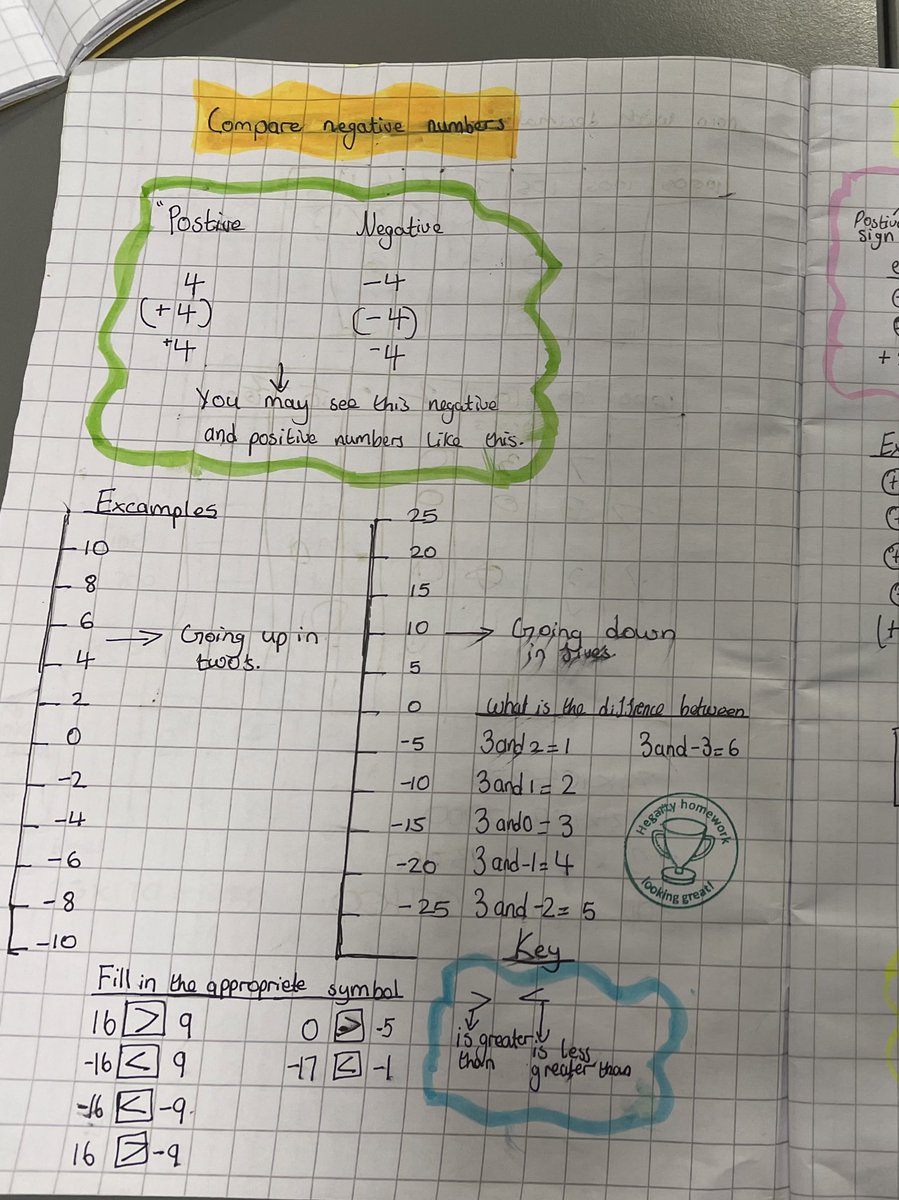 Compare negative numbers
"Postive Negative
4 -4
(+4) (-4)
+4 -4
↓
You may see this negative
and positive numbers like this.
Excamples
10
8
6 → Going up in
twos.
4
2
0
-2
-4
-6
-8
-10
25
20
15
10 → Going down
in fives.
5
0
-5
-10
-15
-20
-25
What is the diffrence between
3and2=1 3and-3=6
3and1=2
3and0=3
3and-1=4
3and-2=5
Hegarty homework
looking great!
Fill in the appropriete symbol
16 > 9 0 > -5
-16 < 9 -17 < -1
-16 < -9
16 > -9
Key
> <
is greater than
is less greater than
Postiv
sign